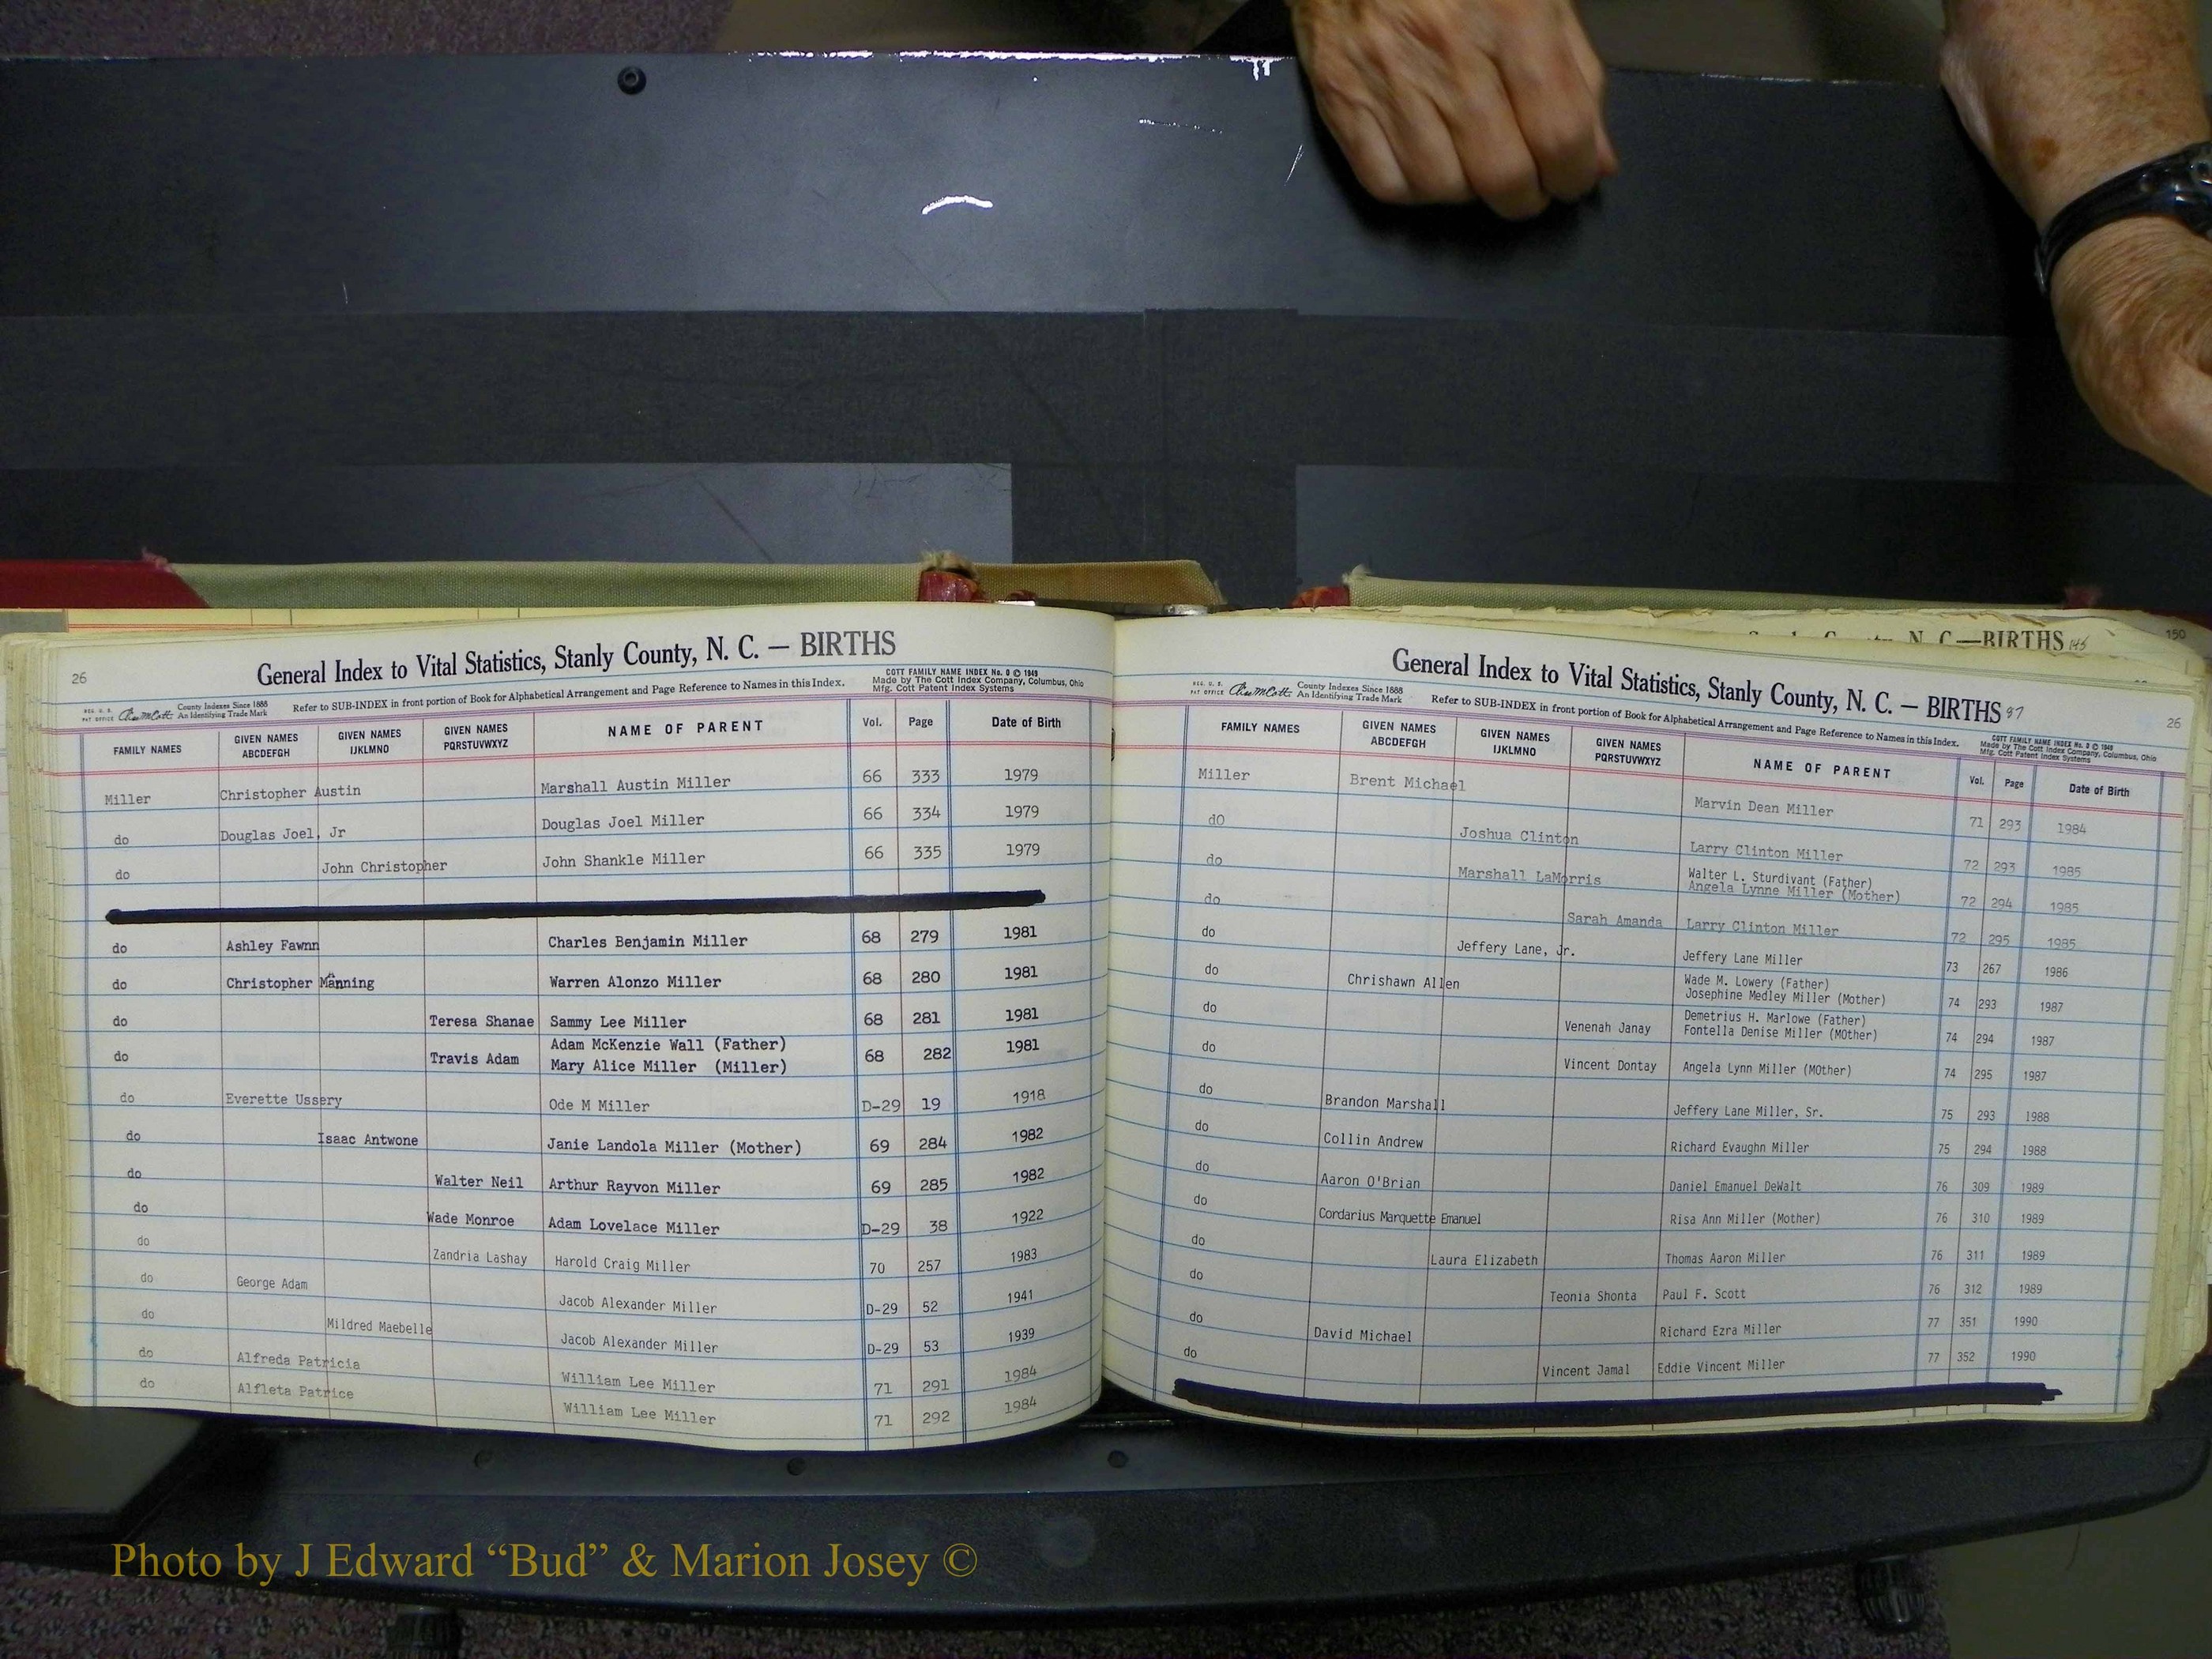 General Index to Vital Statistics, Stanly County, N. C. — BIRTHS
26
REG. U. S. PAT OFFICE County Indexes Since 1888 An Identifying Trade Mark
Refer to SUB-INDEX in front portion of Book for Alphabetical Arrangement and Page Reference to Names in this Index.
COTT FAMILY NAME INDEX No. 0 © 1949
Made by The Cott Index Company, Columbus, Ohio
Mfg. Cott Patent Index Systems
FAMILY NAMES GIVEN NAMES ABCDEFGH GIVEN NAMES IJKLMNO GIVEN NAMES PQRSTUVWXYZ NAME OF PARENT Vol. Page Date of Birth
Miller Christopher Austin Marshall Austin Miller 66 333 1979
do Douglas Joel, Jr Douglas Joel Miller 66 334 1979
do John Christopher John Shankle Miller 66 335 1979
do Ashley Fawnn Charles Benjamin Miller 68 279 1981
do Christopher Manning Warren Alonzo Miller 68 280 1981
do Teresa Shanae Sammy Lee Miller 68 281 1981
do Travis Adam Adam McKenzie Wall (Father) 68 282 1981
Mary Alice Miller (Miller)
do Everette Ussery Ode M Miller D-29 19 1918
do Isaac Antwone Janie Landola Miller (Mother) 69 284 1982
do Walter Neil Arthur Rayvon Miller 69 285 1982
do Wade Monroe Adam Lovelace Miller D-29 38 1922
do Zandria Lashay Harold Craig Miller 70 257 1983
do George Adam Jacob Alexander Miller D-29 52 1941
do Mildred Maebelle Jacob Alexander Miller D-29 53 1939
do Alfreda Patricia William Lee Miller 71 291 1984
do Alfleta Patrice William Lee Miller 71 292 1984
N. C.—BIRTHS 145
150
General Index to Vital Statistics, Stanly County, N. C. — BIRTHS 87
26
REG. U. S. PAT OFFICE County Indexes Since 1888 An Identifying Trade Mark
Refer to SUB-INDEX in front portion of Book for Alphabetical Arrangement and Page Reference to Names in this Index.
COTT FAMILY NAME INDEX No. 0 © 1949
Made by The Cott Index Company, Columbus, Ohio
Mfg. Cott Patent Index Systems
FAMILY NAMES GIVEN NAMES ABCDEFGH GIVEN NAMES IJKLMNO GIVEN NAMES PQRSTUVWXYZ NAME OF PARENT Vol. Page Date of Birth
Miller Brent Michael Marvin Dean Miller 71 293 1984
dO Joshua Clinton Larry Clinton Miller 72 293 1985
do Marshall LaMorris Walter L. Sturdivant (Father)
Angela Lynne Miller (Mother) 72 294 1985
do Sarah Amanda Larry Clinton Miller 72 295 1985
do Jeffery Lane, Jr. Jeffery Lane Miller 73 267 1986
do Chrishawn Allen Wade M. Lowery (Father)
Josephine Medley Miller (Mother) 74 293 1987
do Venenah Janay Demetrius H. Marlowe (Father)
Fontella Denise Miller (MOther) 74 294 1987
do Vincent Dontay Angela Lynn Miller (MOther) 74 295 1987
do Brandon Marshall Jeffery Lane Miller, Sr. 75 293 1988
do Collin Andrew Richard Evaughn Miller 75 294 1988
do Aaron O'Brian Daniel Emanuel DeWalt 76 309 1989
do Cordarius Marquette Emanuel Risa Ann Miller (Mother) 76 310 1989
do Laura Elizabeth Thomas Aaron Miller 76 311 1989
do Teonia Shonta Paul F. Scott 76 312 1989
do David Michael Richard Ezra Miller 77 351 1990
do Vincent Jamal Eddie Vincent Miller 77 352 1990
Photo by J Edward “Bud” & Marion Josey ©